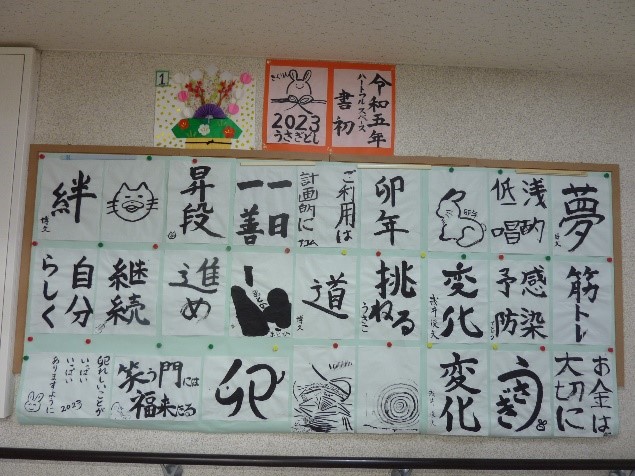 1
2023
うさぎどし
令和五年
ハートフルスペース
書初
夢
浅酌
低唱
卯年
ご利用は
計画的に
一日
一善
昇段
絆
博文
筋トレ
感染
予防
変化
挑ねる
うさぎ
道
博文
進め
継続
自分
らしく
お金は
大切に
うさぎ
変化
卯
笑う門には
福来たる
いっぱい
いっぱい
ありますように
2023